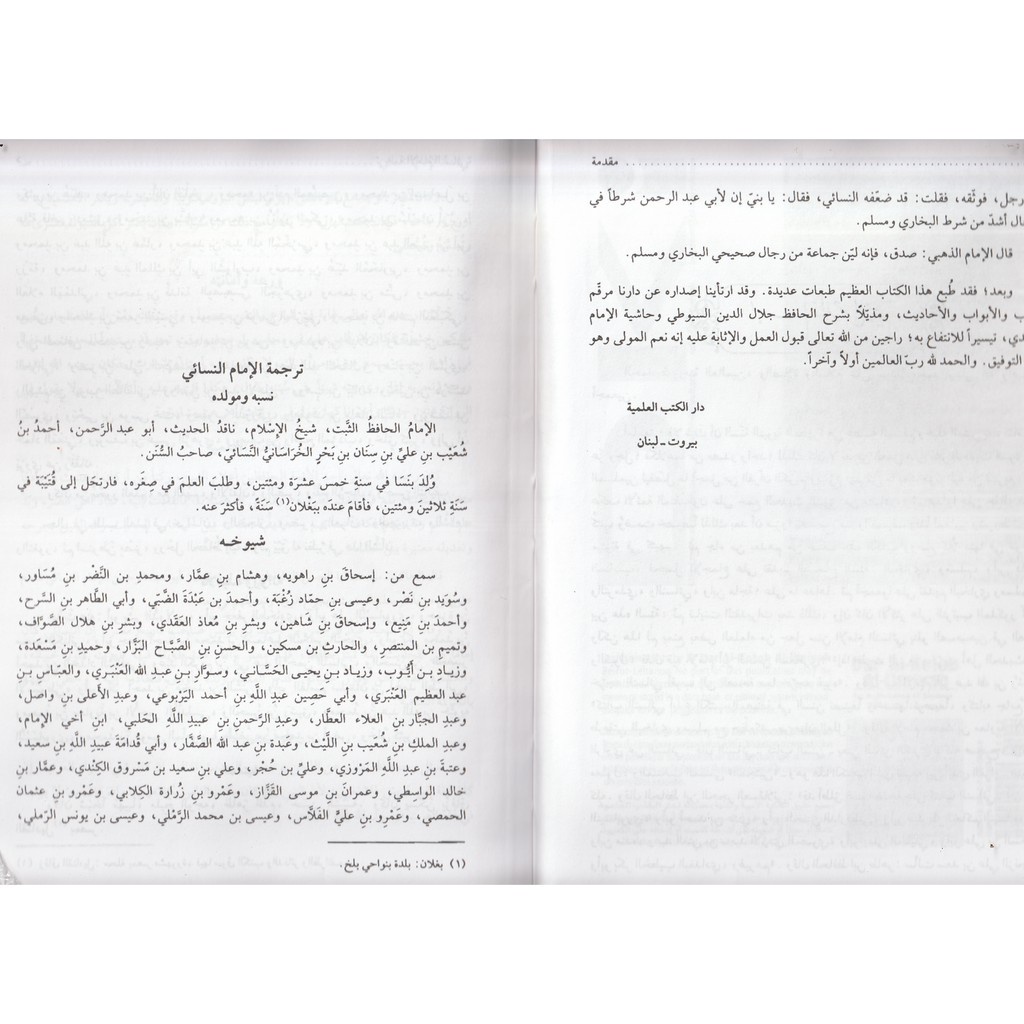 مقدمة
رجل، فوثّقه، فقلت: قد ضعّفه النسائي، فقال: يا بنيّ إن لأبي عبد الرحمن شرطاً في
أشدّ من شرط البخاري ومسلم.
قال الإمام الذهبي: صدق، فإنه ليّن جماعة من رجال صحيحي البخاري ومسلم.
وبعد؛ فقد طُبع هذا الكتاب العظيم طبعات عديدة. وقد ارتأينا إصداره عن دارنا مرقّم
والأبواب والأحاديث، ومذيّلاً بشرح الحافظ جلال الدين السيوطي وحاشية الإمام
تيسيراً للانتفاع به؛ راجين من الله تعالى قبول العمل والإثابة عليه إنه نعم المولى وهو
التوفيق. والحمد لله ربّ العالمين أولاً وآخراً.
دار الكتب العلمية
بيروت ـ لبنان
ترجمة الإمام النسائي
نسبه ومولده
الإمامُ الحافظُ الثَّبت، شيخُ الإسْلام، ناقدُ الحديث، أبو عبد الرَّحمن، أحمدُ بنُ
شُعَيْب بنِ عليِّ بنِ سِنَان بنِ بَحْرٍ الخُرَاسَانيُّ النَّسَائيّ، صاحبُ السُّنَن.
وُلِدَ بنَسَا في سنةِ خمسَ عشرَة ومئتين، وطلبَ العلمَ في صِغَره، فارتحَل إلى قُتَيْبَة في
سَنَةِ ثلاثينَ ومئتين، فأقامَ عندَه ببَغْلان(١) سَنَةً، فأكثرَ عنه.
شيوخـه
سمع من: إسحاقَ بنِ راهويه، وهشامِ بنِ عمَّار، ومحمدِ بن النَّضْر بنِ مُسَاور،
وسُوَيد بنِ نَصْر، وعيسى بنِ حمّاد زُغْبَة، وأحمدَ بنِ عَبْدَة الضَّبّي، وأبي الطَّاهر بنِ السَّرح،
وأحمدَ بنِ مَنِيع، وإسحاقَ بنِ شاهين، وبشرِ بنِ مُعاذ العَقَدي، وبشرِ بنِ هلال الصَّوَّاف،
وتميمِ بنِ المنتصر، والحارثِ بنِ مسكين، والحسنِ بنِ الصَّبَّاح البَزَّار، وحميدِ بنِ مَسْعَدة،
وزيادِ بنِ أيُّوب، وزيادِ بنِ يحيى الحَسَّاني، وسوَّارِ بنِ عبدِ الله العَنْبَري، والعبَّاسِ بنِ
عبد العظيم العَنْبَري، وأبي حَصِين عبدِ اللَّهِ بنِ أحمد اليَرْبوعي، وعبدِ الأعلى بنِ واصل،
وعبدِ الجبَّار بنِ العلاء العطَّار، وعبدِ الرَّحمنِ بنِ عبيدِ اللَّهِ الحَلبي، ابنِ أخي الإمام،
وعبدِ الملكِ بنِ شُعَيب بنِ اللَّيْث، وعَبدةَ بنِ عبد الله الصَّفَّار، وأبي قُدامَةَ عبيدِ اللَّهِ بنِ سعيد،
وعتبةَ بنِ عبدِ اللَّهِ المَرْوَزي، وعليِّ بنِ حُجْر، وعلي بنِ سعيد بنِ مَسْروق الكِنْدي، وعمَّار بنِ
خالد الواسِطي، وعمرانَ بنِ موسى القَزَّاز، وعَمْرو بنِ زُرارة الكِلابي، وعَمْرو بنِ عثمان
الحمصي، وعَمْرو بنِ عليٍّ الفَلَّاس، وعيسى بن محمد الرَّمْلي، وعيسى بن يونس الرَّملي،
(١) بغلان: بلدة بنواحي بلخ.